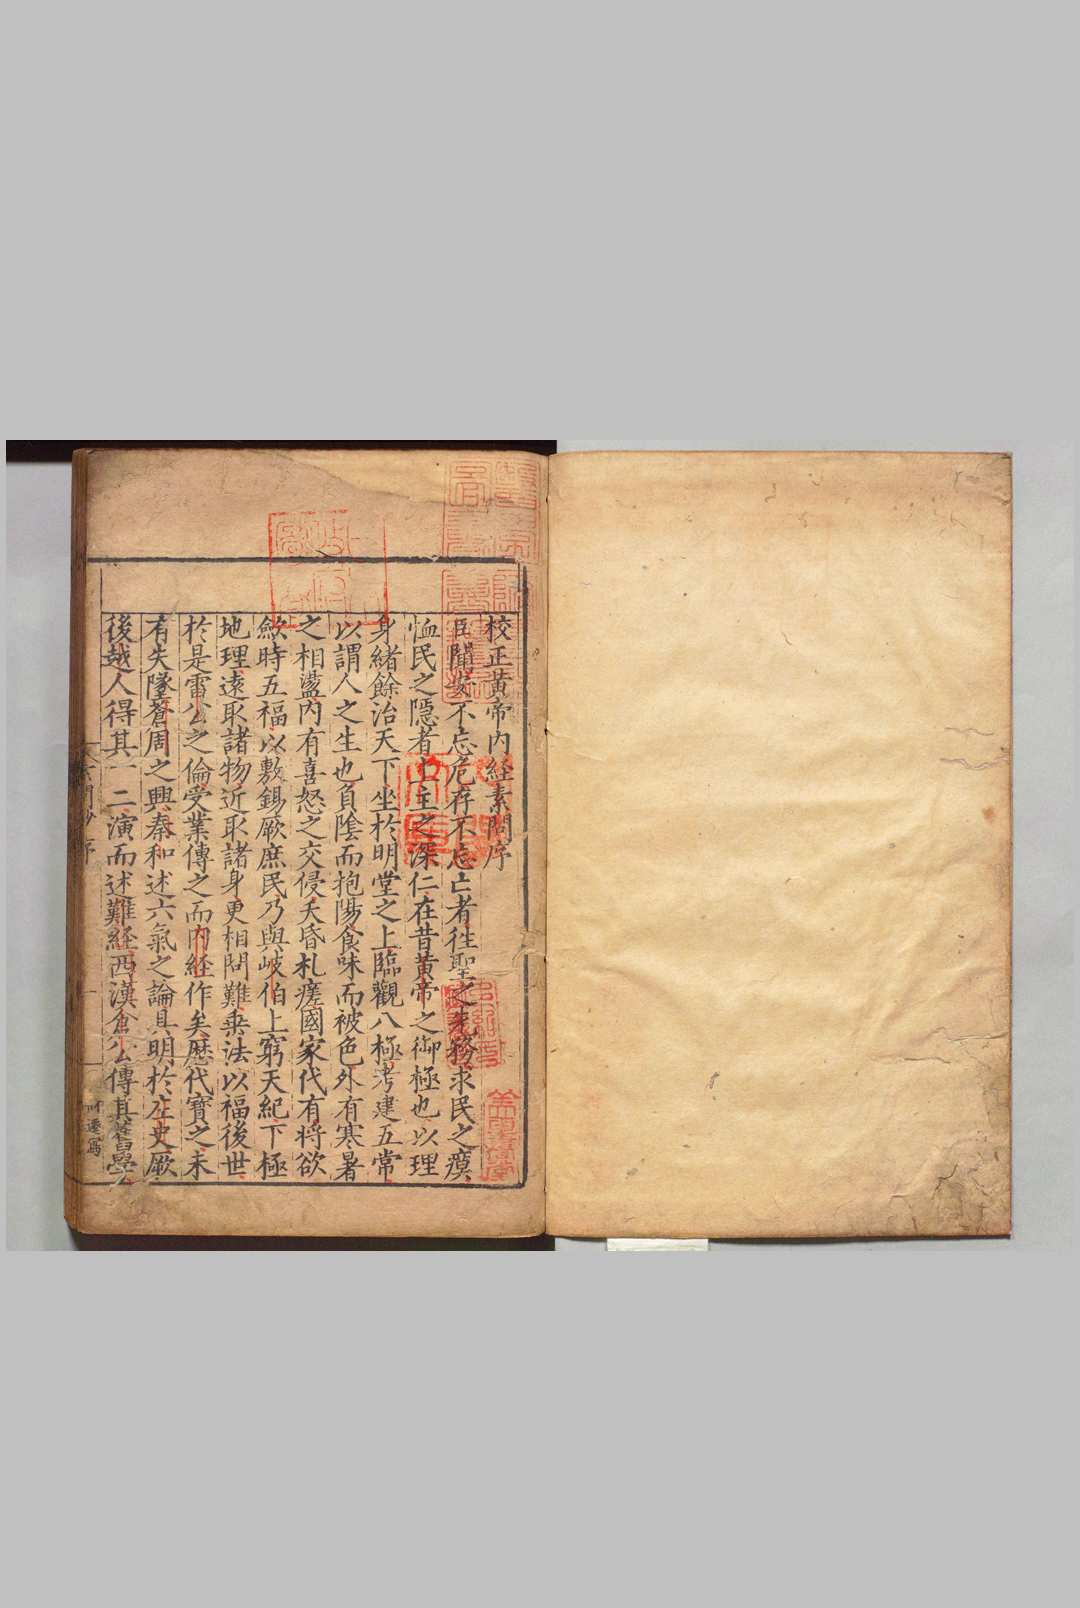 校正黃帝內經素問序
臣聞安不忘危存不忘亡者往聖之先務求民之瘼
恤民之隱者上主之深仁在昔黃帝之御極也以理
身緒餘治天下坐於明堂之上臨觀八極考建五常
以謂人之生也負陰而抱陽食味而被色外有寒暑
之相盪內有喜怒之交侵夭昏札瘥國家代有將欲
斂時五福以敷錫厥庶民乃與岐伯上窮天紀下極
地理遠取諸物近取諸身更相問難垂法以福後世
於是雷公之倫受業傳之而內經作矣歷代寶之未
有失墜蒼周之興秦和述六氣之論具明於左史厥
後越人得其一二演而述難經西漢倉公傳其舊學